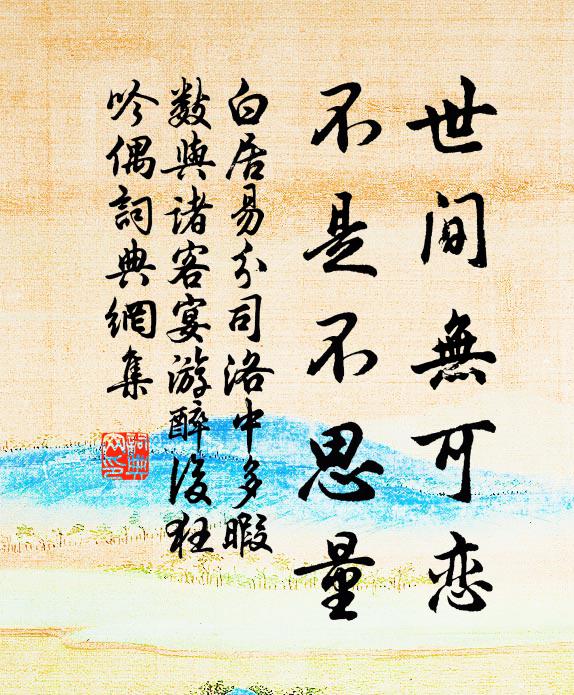 世間無可恋
不是不思量
白居易分司洛中多暇
数與诸客宴游醉後狂
吟偶詞典網集